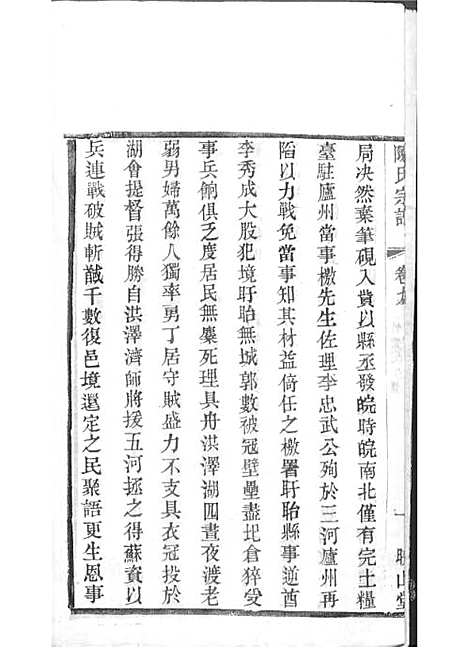 氏宗譜 卷
局决然棄筆硯入貲以縣丞發皖時皖南北僅有完土糧
臺駐廬州當事檄先生佐理李忠武公殉於三河廬州再
陷以力戰免當事知其材益倚任之檄署盱眙縣事逆酋
李秀成大股犯境盱眙無城郭數被寇壁壘盡圮倉猝受
事兵餉俱乏度居民無麋死理具舟洪澤湖四晝夜渡老
弱男婦萬餘人獨率勇丁居守賊盛力不支具衣冠投於
湖會提督張得勝自洪澤濟師將援五河拯之得蘇資以
兵連戰破賊斬馘千數復邑境還定之民聚語更生恩事
一 山堂